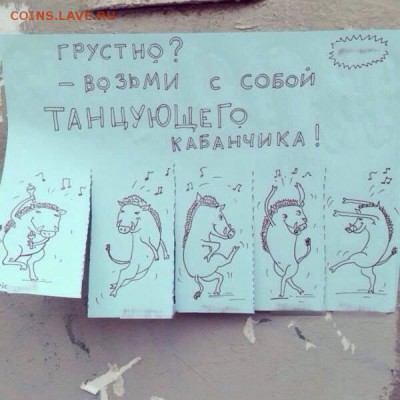 COINS.LAVE.RU
ГРУСТНО?
– ВОЗЬМИ С СОБОЙ
ТАНЦУЮЩЕГО
КАБАНЧИКА!